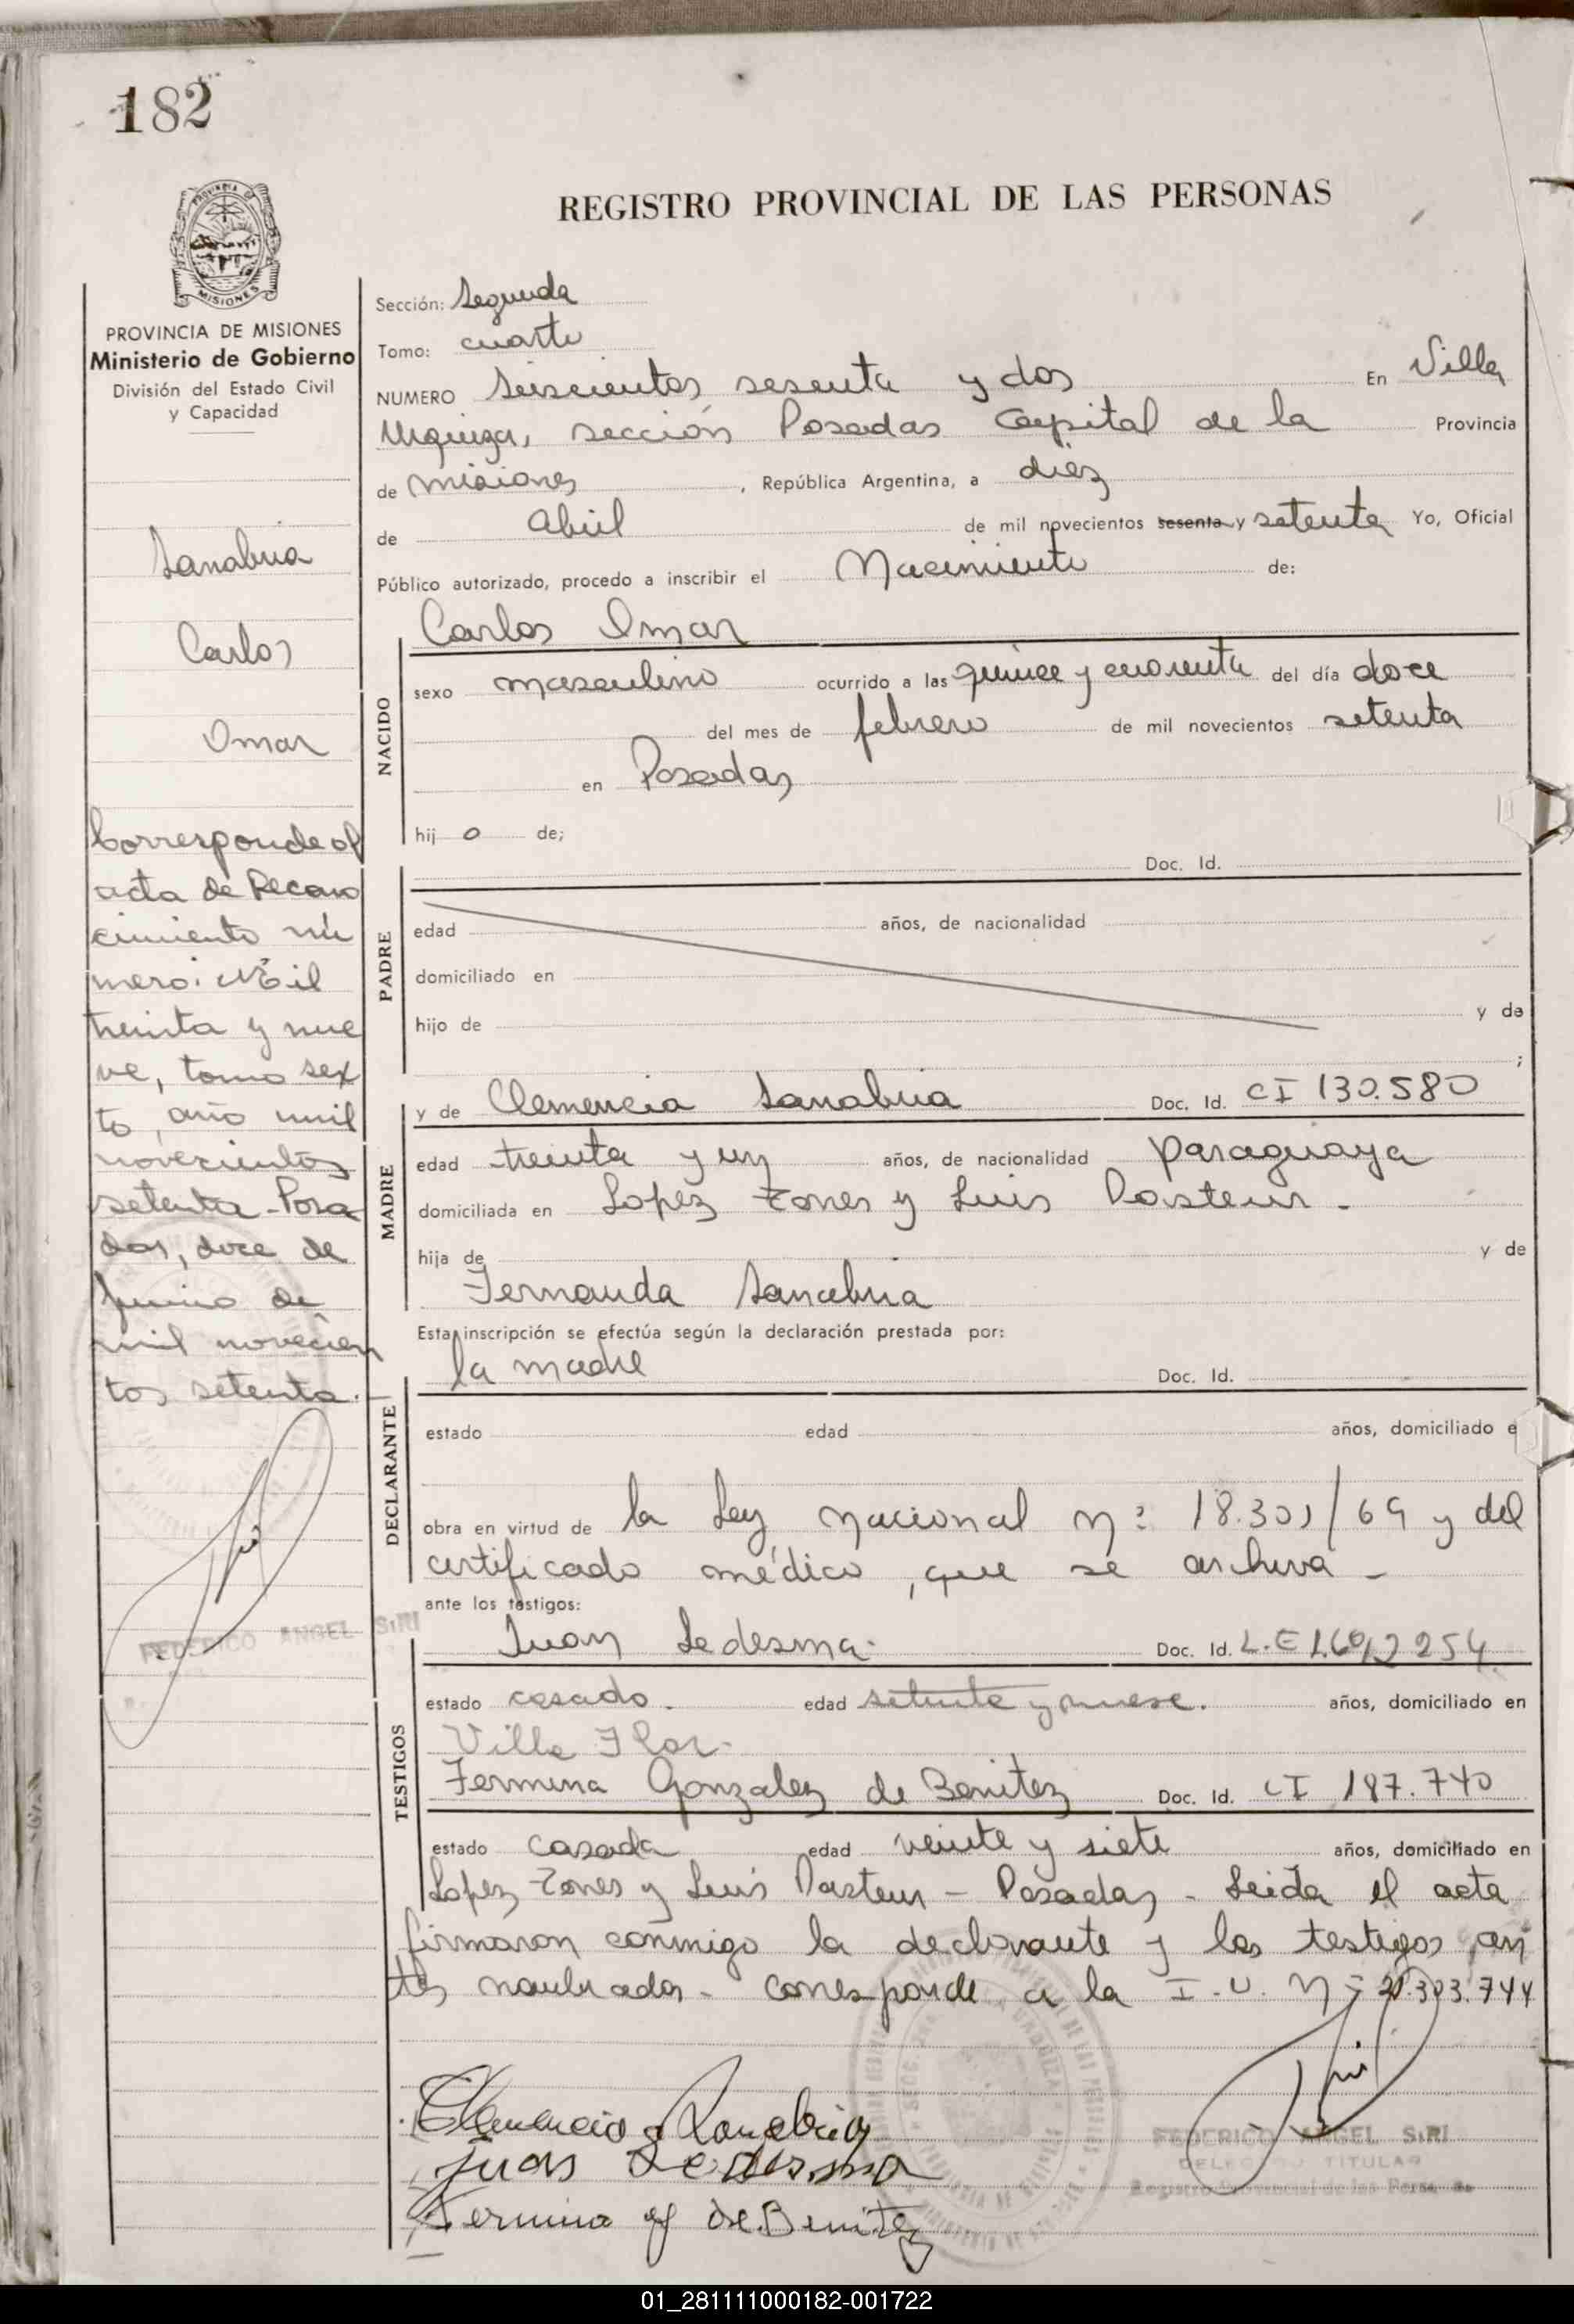 182
REGISTRO PROVINCIAL DE LAS PERSONAS
PROVINCIA DE
MISIONES
PROVINCIA DE MISIONES
Ministerio de Gobierno
División del Estado Civil
y Capacidad
Sanabria
Carlos
Omar
Corresponde al
acta de Recono
cimiento nú
mero: Mil
treinta y nue
ve, tomo sex
to, año mil
novecientos
setenta - Posa
das, doce de
Junio de
mil novecien
tos setenta.
FEDERICO ANGEL SIRI
Sección: Segunda
Tomo: cuarto
NUMERO Seiscientos sesenta y dos En Villa
Urquiza, sección Posadas Capital de la Provincia
de Misiones, República Argentina, a diez
de abril de mil novecientos sesenta y setenta Yo, Oficial
Público autorizado, procedo a inscribir el Nacimiento de:
Carlos Omar
NACIDO
sexo masculino ocurrido a las quince y cuarenta del día doce
del mes de febrero de mil novecientos setenta
en Posadas
hij o de;
Doc. Id.
PADRE
edad años, de nacionalidad
domiciliado en
hijo de y de
;
y de Clemencia Sanabria Doc. Id. CI 130.580
MADRE
edad treinta y un años, de nacionalidad paraguaya
domiciliada en Lopez Torres y Luis Pasteur -
hija de y de
Fernanda Sanabria
Esta inscripción se efectúa según la declaración prestada por:
la madre Doc. Id.
DECLARANTE
estado edad años, domiciliado e
obra en virtud de la Ley Nacional Nº 18.301/69 y del
certificado médico, que se archiva -
ante los testigos:
Juan Ledesma. Doc. Id. L.E
TESTIGOS
estado casado. edad setenta y nueve. años, domiciliado en
Villa Flor.
Fermina Gonzalez de Benitez Doc. Id. CI 187.740
estado casada edad veinte y siete años, domiciliado en
Lopez Torres y Luis Pasteur - Posadas - Leida el acta
firmaron conmigo la declarante y los testigos an
tes nombrados - corresponde a la I.U. Nº
Clemencia Sanabria
Juan Ledesma
Fermina g de Benitez
FEDERICO ANGEL SIRI
DELEGADO TITULAR
Registro Provincial de las Personas
01_281111000182-001722